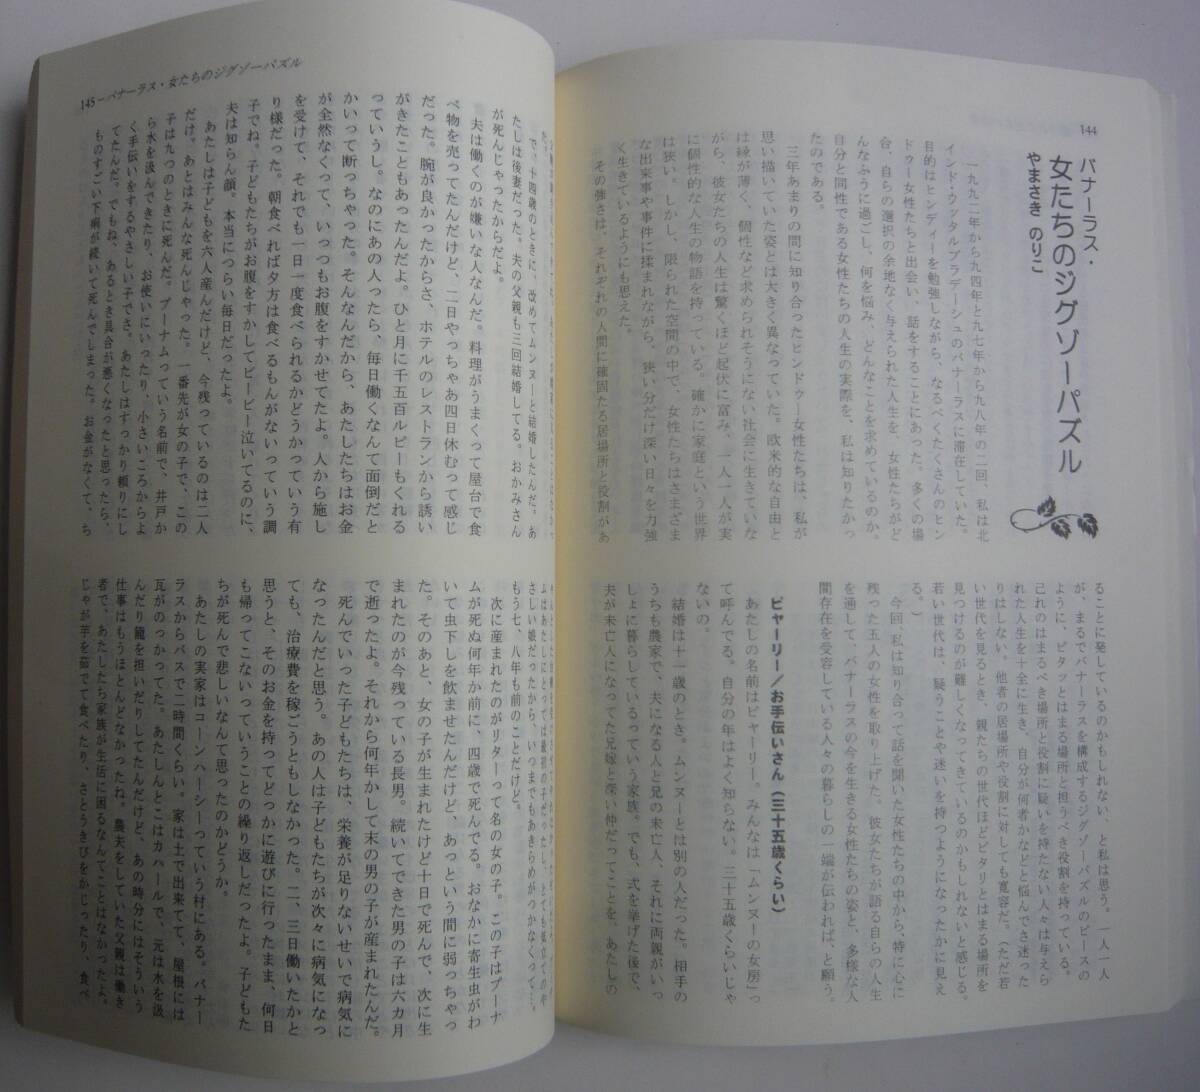 144
バナーラス・
女たちのジグソーパズル
やまさき のりこ
一九九二年から九四年と九七年から九八年の二回、私は北
インド・ウッタルプラデーシュのバナーラスに滞在していた。
目的はヒンディーを勉強しながら、なるべくたくさんのヒン
ドゥー女性たちと出会い、話をすることにあった。多くの場
合、自らの選択の余地なく与えられた人生を、女性たちがど
んなふうに過ごし、何を悩み、どんなことを求めているのか。
自分と同性である女性たちの人生の実際を、私は知りたかっ
たのである。
三年あまりの間に知り合ったヒンドゥー女性たちは、私が
思い描いていた姿とは大きく異なっていた。欧米的な自由と
は縁が薄く、個性など求められそうにない社会に生きていな
がら、彼女たちの人生は驚くほど起伏に富み、一人一人が実
に個性的な人生の物語を持っている。確かに家庭という世界
は狭い。しかし、限られた空間の中で、女性たちはさまざま
な出来事や事件に揉まれながら、狭い分だけ深い日々を力強
く生きているようにも思えた。
その強さは、それぞれの人間に確固たる居場所と役割があ
ることに発しているのかもしれない、と私は思う。一人一人
が、まるでバナーラスを構成するジグソーパズルのピースの
ように、ピタッとはまる場所と担うべき役割を持っている。
己れのはまるべき場所と役割に疑いを持たない人々は与えら
れた人生を十全に生き、自分が何者かなどと悩んでさ迷った
りはしない。他者の居場所や役割に対しても寛容だ。（ただ若
い世代を見るとき、親たちの世代ほどピタリとはまる場所を
見つけるのが難しくなってきているのかもしれないと感じる。
若い世代は、疑うことや迷いを持つようになったかに見え
る。）
今回、私は知り合って話を聞いた女性たちの中から、特に心に
残った五人の女性を取り上げた。彼女たちが語る自らの人生
を通して、バナーラスの今を生きる女性たちの姿と、多様な人
間存在を受容している人々の暮らしの一端が伝われば、と願う。
ピャーリー／お手伝いさん（三十五歳くらい）
あたしの名前はピャーリー。みんなは「ムンヌーの女房」っ
て呼んでる。自分の年はよく知らない。三十五歳くらいじゃ
ないの。
結婚は十一歳のとき。ムンヌーとは別の人だった。相手の
うちも農家で、夫になる人と兄の未亡人、それに両親がいっ
しょに暮らしているっていう家族。でも、式を挙げた後で、
夫が未亡人になってた兄嫁と深い仲だってことを、あたしの
145－バナーラス・女たちのジグソーパズル
で、十四歳のときに、改めてムンヌーと結婚したんだ。あ
たしは後妻だった。夫の父親も三回結婚してる。おかみさん
が死んじゃったからだよ。
夫は働くのが嫌いな人なんだ。料理がうまくって屋台で食
べ物を売ってたんだけど、二日やっちゃあ四日休むって感じ
だった。腕が良かったからさ、ホテルのレストランから誘い
がきたこともあったんだよ。ひと月に千五百ルピーもくれる
っていうし。なのにあの人ったら、毎日働くなんて面倒だと
かいって断っちゃった。そんなんだから、あたしたちはお金
が全然なくって、いっつもお腹をすかせてたよ。人から施し
を受けて、それでも一日一度食べられるかどうかっていう有
り様だった。朝食べれば夕方は食べるもんがないっていう調
子でね。子どもたちがお腹をすかしてピーピー泣いてるのに、
夫は知らん顔。本当につらい毎日だったよ。
あたしは子どもを六人産んだけど、今残っているのは二人
だけ。あとはみんな死んじゃった。一番先が女の子で、この
子は九つのときに死んだ。プーナムっていう名前で、井戸か
ら水を汲んできたり、お使いにいったり、小さいころからよ
く手伝いをするやさしい子でさ。あたしはすっかり頼りにし
てたんだ。でもね、あるとき具合が悪くなったと思ったら、
ものすごい下痢が続いて死んでしまった。お金がなくて、ち
さしい娘だったから、いつまでもあきらめがつかなくって…。
もう七、八年も前のことだけど。
次に産まれたのがリターって名の女の子。この子はプーナ
ムが死ぬ何年か前に、四歳で死んでる。おなかに寄生虫がわ
いて虫下しを飲ませたんだけど、あっという間に弱っちゃっ
た。そのあと、女の子が生まれたけど十日で死んで、次に生
まれたのが今残っている長男。続いてできた男の子は六カ月
で逝ったよ。それから何年かして末の男の子が産まれたんだ。
死んでいった子どもたちは、栄養が足りないせいで病気に
なったんだと思う。あの人は子どもたちが次々に病気になっ
ても、治療費を稼ごうともしなかった。二、三日働いたかと
思うと、そのお金を持ってどっかに遊びに行ったまま、何日
も帰ってこないっていうことの繰り返しだったよ。子どもた
ちが死んで悲しいなんて思ったのかどうか。
あたしの実家はコーンハーシーっていう村にある。バナー
ラスからバスで二時間くらい。家は土で出来てて、屋根には
瓦がのっかってた。あたしんとこはカハールで、元は水を汲
んだり籠を担いだりしてたんだけど、あの時分にはそういう
仕事はもうほとんどなかったね。農夫をしていた父親は働き
者で、あたしたち家族が生活に困るなんてことはなかったよ。
じゃが芋を茹でて食べたり、さとうきびをかじったり、食べ